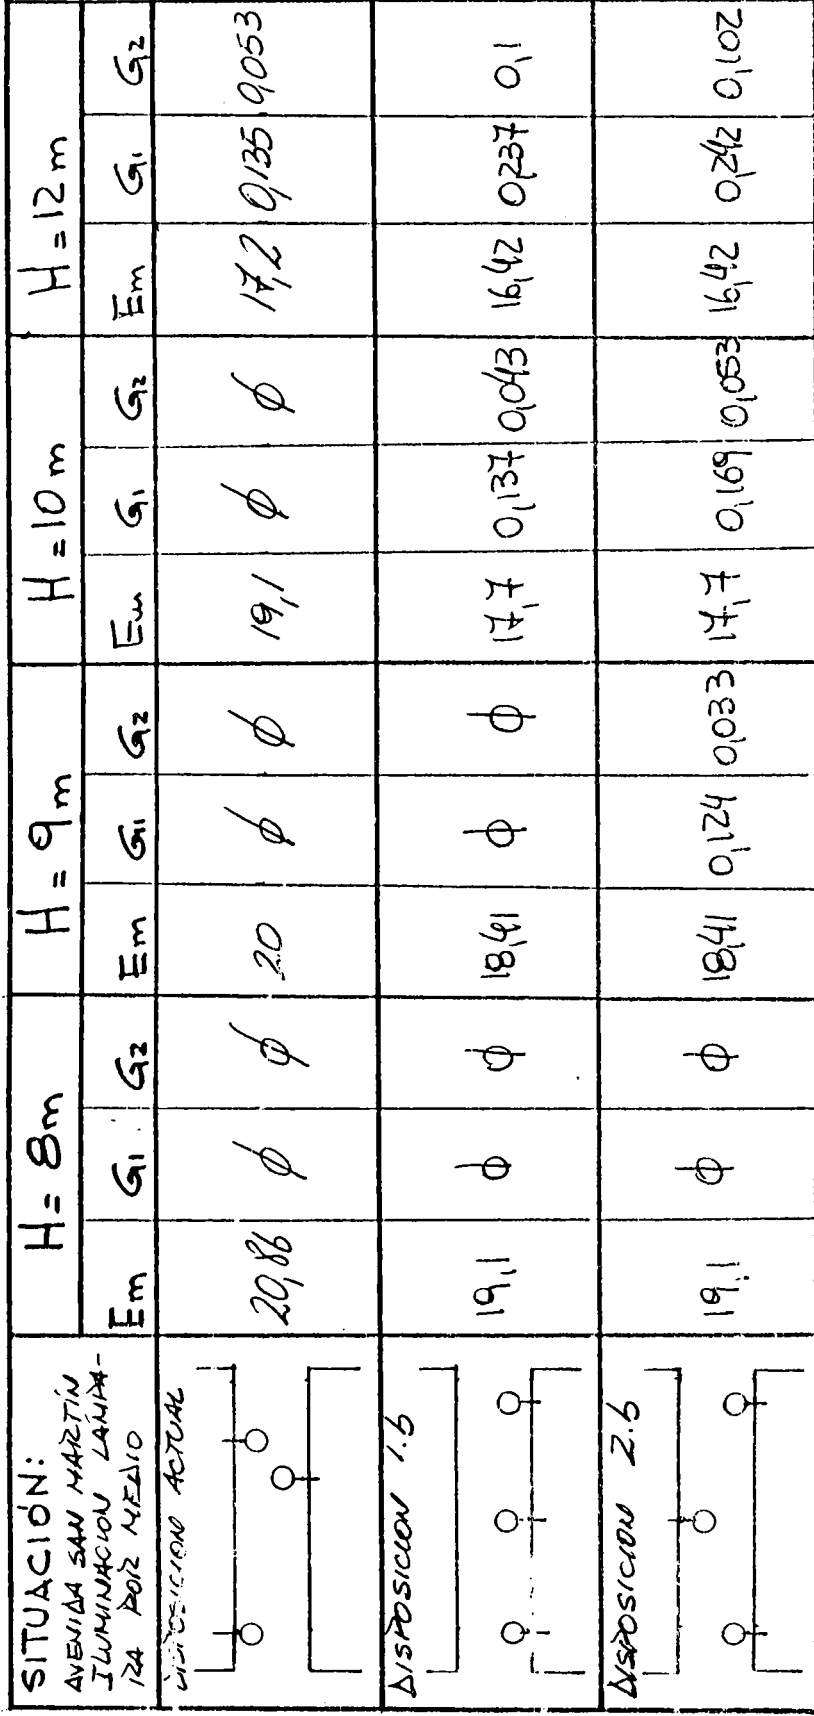 SITUACIÓN:
AVENIDA SAN MARTÍN
ILUMINACION LÁMPA-
RA POR MEDIO
H = 8m H = 9m H = 10m H = 12m
Em G1 G2 Em G1 G2 Em G1 G2 Em G1 G2
DISPOSICION ACTUAL
20,86 ϕ ϕ 20 ϕ ϕ 19,1 ϕ ϕ 17,2 0,135 0,053
DISPOSICION 1.b
19,1 ϕ ϕ 18,41 ϕ ϕ 17,7 0,137 0,043 16,42 0,237 0,1
DISPOSICION 2.b
19,1 ϕ ϕ 18,41 0,124 0,033 17,7 0,169 0,053 16,42 0,242 0,102